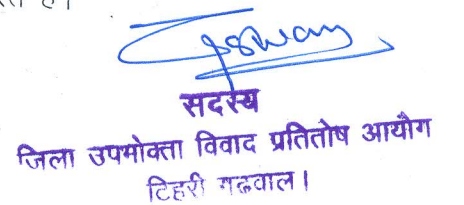 है।
सदस्य
जिला उपभोक्ता विवाद प्रतितोष आयोग
टिहरी गढवाल।